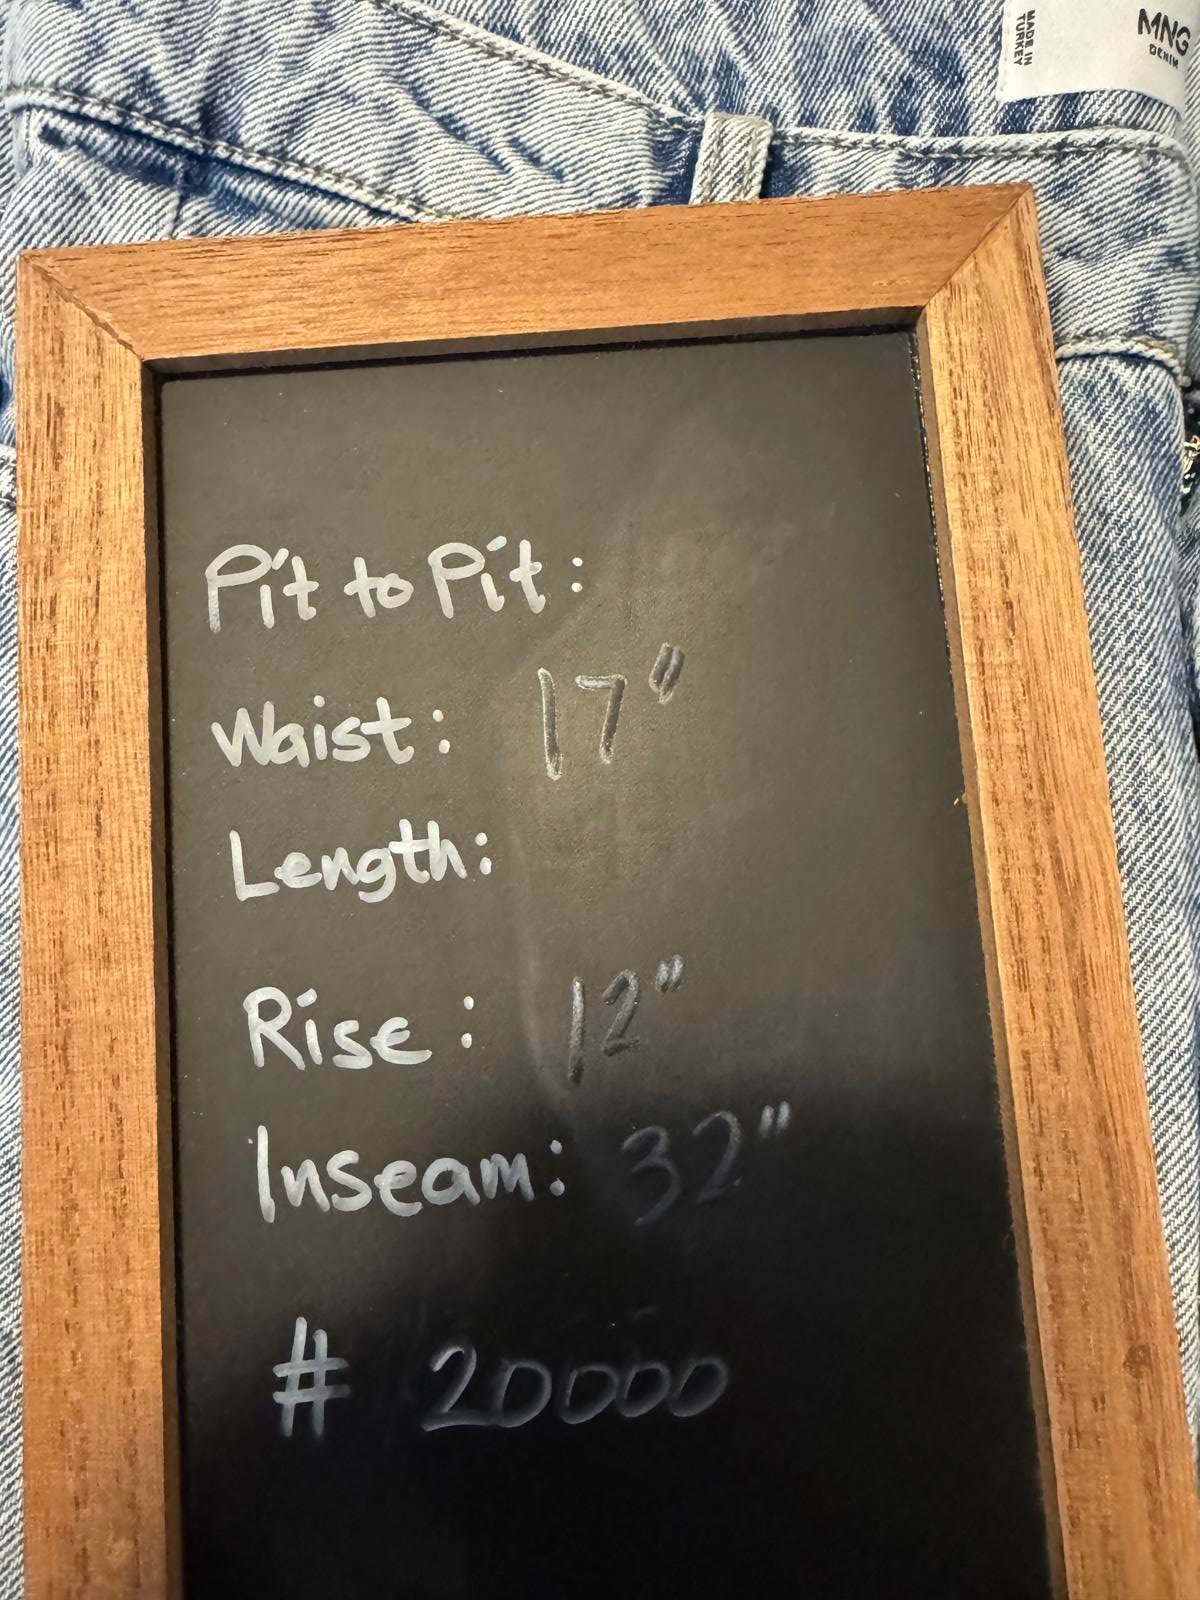 MNG
DENIM
MADE IN
TURKEY
Pit to Pit:
Waist: 17"
Length:
Rise: 12"
Inseam: 32"
# 20000